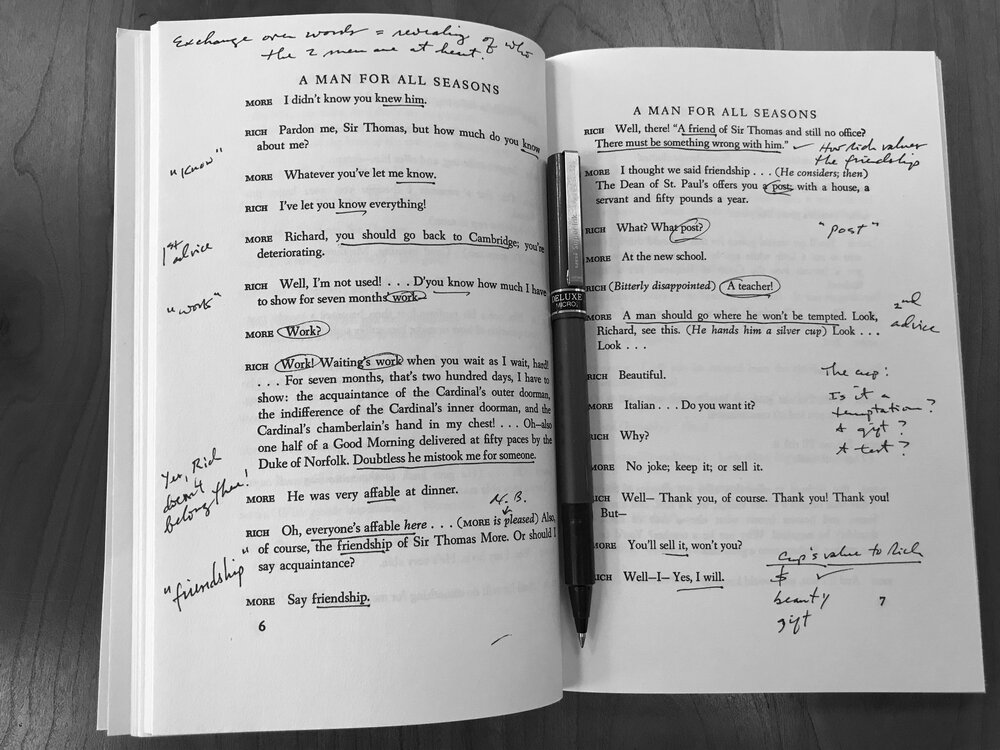 Exchange over words = revealing of who
the 2 men are at heart.
A MAN FOR ALL SEASONS
MORE I didn't know you knew him.
RICH Pardon me, Sir Thomas, but how much do you know
about me?
"know"
MORE Whatever you've let me know.
RICH I've let you know everything!
1st
advice
MORE Richard, you should go back to Cambridge; you're
deteriorating.
RICH Well, I'm not used! . . . D'you know how much I have
to show for seven months' work—
"work"
MORE Work?
RICH Work! Waiting's work when you wait as I wait, hard!
. . . For seven months, that's two hundred days, I have to
show: the acquaintance of the Cardinal's outer doorman,
the indifference of the Cardinal's inner doorman, and the
Cardinal's chamberlain's hand in my chest! . . . Oh—also
one half of a Good Morning delivered at fifty paces by the
Duke of Norfolk. Doubtless he mistook me for someone.
Yes, Rich
doesn't
belong there!
MORE He was very affable at dinner.
N.B.
RICH Oh, everyone's affable here . . . (MORE is pleased) Also,
of course, the friendship of Sir Thomas More. Or should I
say acquaintance?
"friendship"
MORE Say friendship.
6
A MAN FOR ALL SEASONS
RICH Well, there! "A friend of Sir Thomas and still no office?
There must be something wrong with him."
How Rich values
the friendship
MORE I thought we said friendship . . . (He considers; then)
The Dean of St. Paul's offers you a post; with a house, a
servant and fifty pounds a year.
RICH What? What post?
"post"
MORE At the new school.
RICH (Bitterly disappointed) A teacher!
MORE A man should go where he won't be tempted. Look,
Richard, see this. (He hands him a silver cup) Look . . .
Look . . .
2nd
advice
RICH Beautiful.
The cup:
Is it a
temptation?
A gift?
A test?
MORE Italian . . . Do you want it?
RICH Why?
MORE No joke; keep it; or sell it.
RICH Well— Thank you, of course. Thank you! Thank you!
But—
MORE You'll sell it, won't you?
RICH Well—I— Yes, I will.
cup's value to Rich
$
beauty
gift
7
DELUXE
MICRO